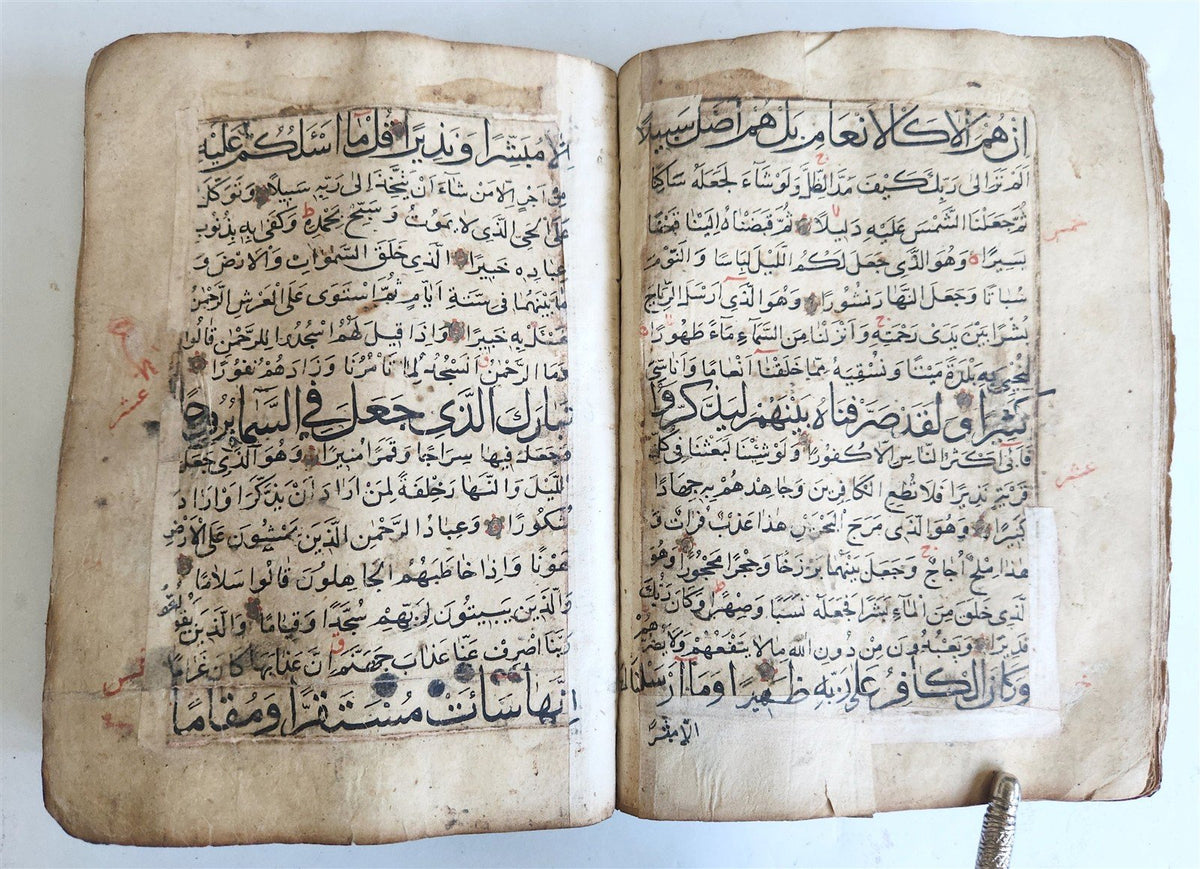 ان هم الا كالانعام بل هم اضل سبيلا
الم تر الى ربك كيف مد الظل ولو شاء لجعله ساكنا
ثم جعلنا الشمس عليه دليلا ثم قبضناه الينا قبضا
يسيرا وهو الذي جعل لكم الليل لباسا والنوم
سباتا وجعل النهار نشورا وهو الذي ارسل الرياح
بشرا بين يدي رحمته وانزلنا من السماء ماء طهورا
لنحيي به بلدة ميتا ونسقيه مما خلقنا انعاما واناسي
كثيرا ولقد صرفناه بينهم ليذكروا
فابى اكثر الناس الا كفورا ولو شئنا لبعثنا في كل
قرية نذيرا فلا تطع الكافرين وجاهدهم به جهادا
كبيرا وهو الذي مرج البحرين هذا عذب فرات و
هذا ملح اجاج وجعل بينهما برزخا وحجرا محجورا وهو
الذي خلق من الماء بشرا فجعله نسبا وصهرا وكان ربك
قديرا ويعبدون من دون الله ما لا ينفعهم ولا يضرهم
وكان الكافر على ربه ظهيرا وما ارسلناك
الا مبشرا
خمس
عشر
الا مبشرا ونذيرا قل ما اسئلكم عليه
من اجر الا من شاء ان يتخذ الى ربه سبيلا وتوكل
على الحي الذي لا يموت وسبح بحمده وكفى به بذنوب
عباده خبيرا الذي خلق السموات والارض و
ما بينهما في ستة ايام ثم استوى على العرش الرحمن
فسئل به خبيرا واذا قيل لهم اسجدوا للرحمن قالوا
وما الرحمن انسجد لما تامرنا وزادهم نفورا
تبارك الذي جعل في السماء بروجا
وجعل فيها سراجا وقمرا منيرا وهو الذي جعل
الليل والنهار خلفة لمن اراد ان يذكر او اراد
شكورا وعباد الرحمن الذين يمشون على الارض
هونا واذا خاطبهم الجاهلون قالوا سلاما
والذين يبيتون لربهم سجدا وقياما والذين يقولون
ربنا اصرف عنا عذاب جهنم ان عذابها كان غراما
انها ساءت مستقرا ومقاما
عشر